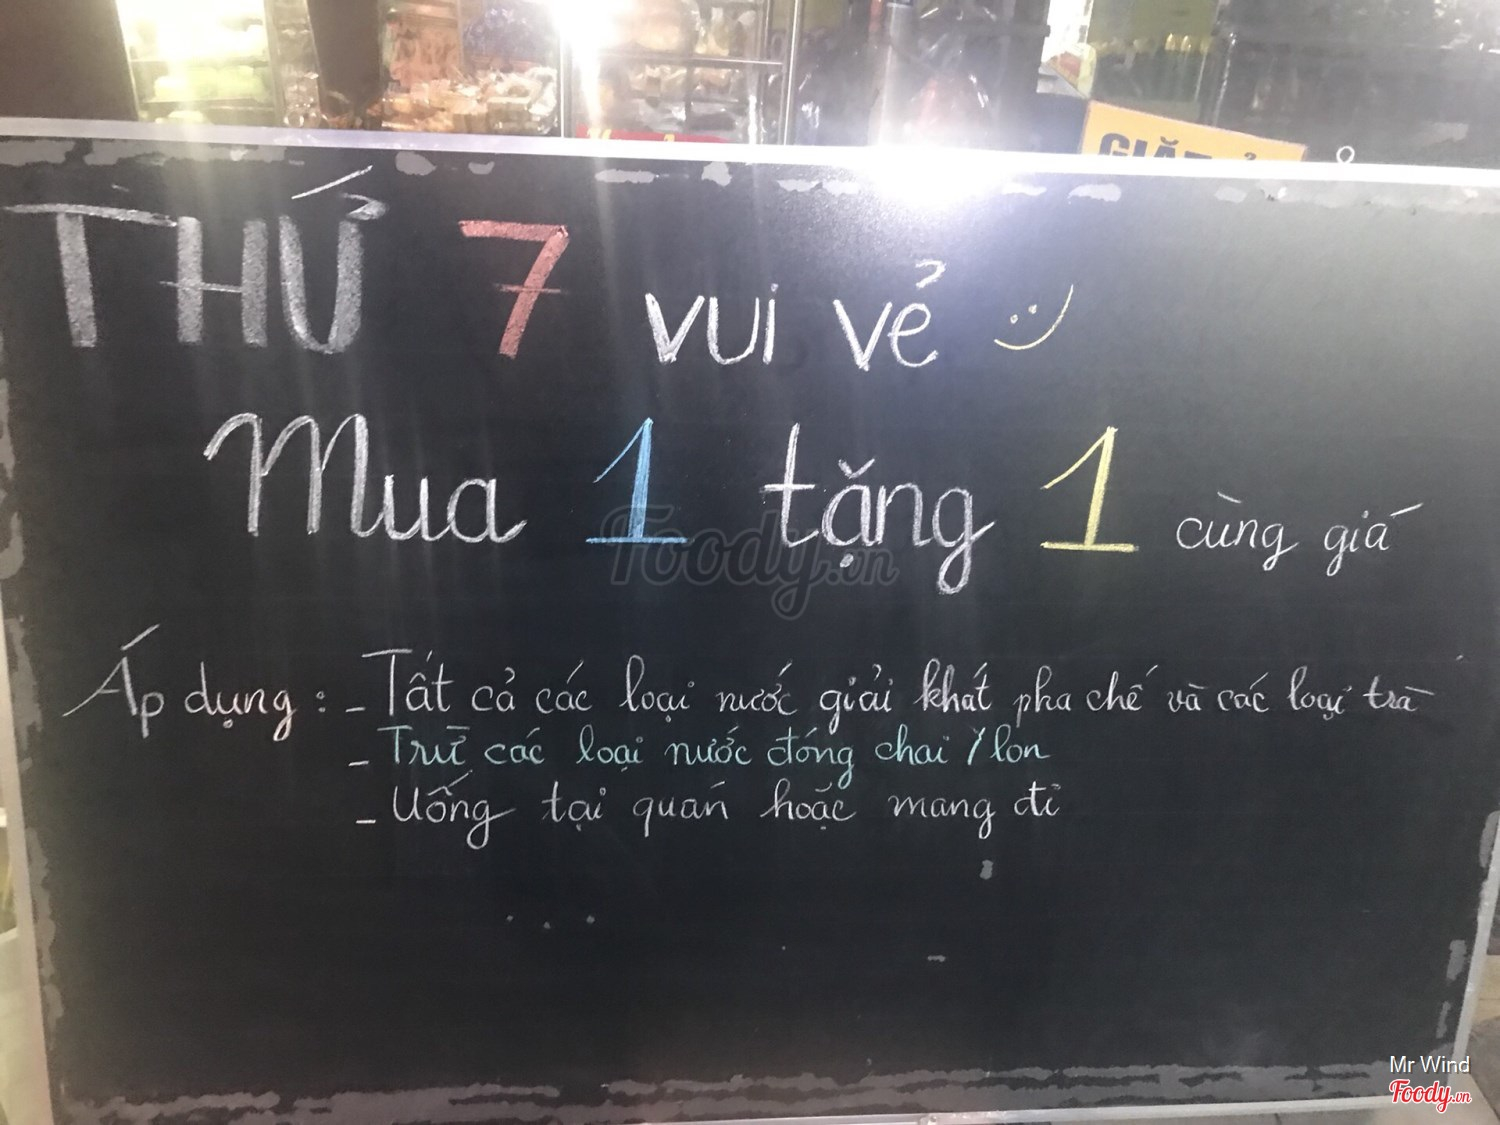 THỨ 7 vui vẻ
Mua 1 tặng 1 cùng giá
Áp dụng : - Tất cả các loại nước giải khát pha chế và các loại trà
- Trừ các loại nước đóng chai / lon
- Uống tại quán hoặc mang đi
Foody.vn
Mr Wind
Foody.vn